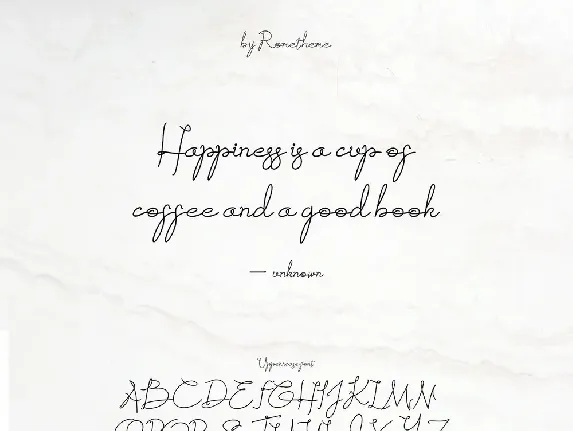 by Rometheme
Happiness is a cup of
coffee and a good book
— unknown
Uppercase font
ABCDEFGHIJKLMN